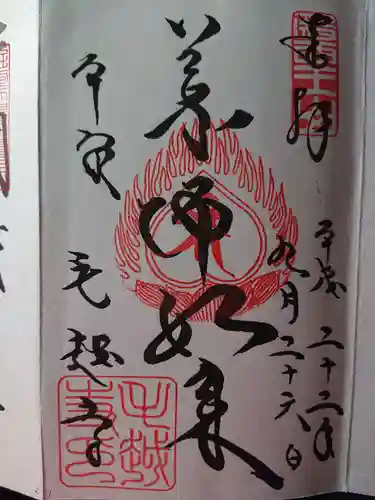 奉拝
平成二十二年
九月二十六日
薬師如来
平泉
毛越寺